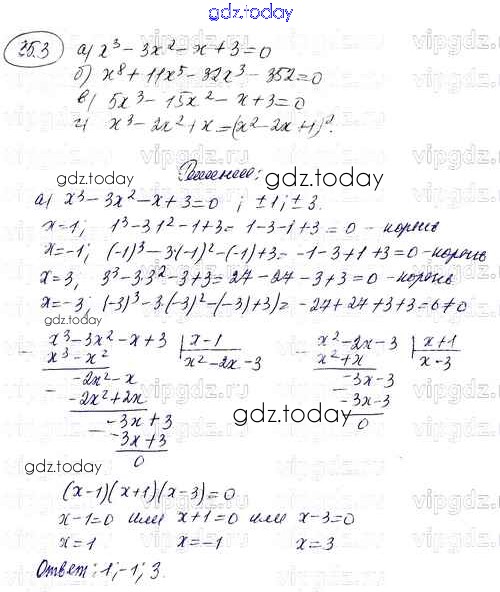 gdz.today
26.3 а) x³ - 3x² - x + 3 = 0
б) x⁸ + 11x⁵ - 32x³ - 352 = 0
в) 5x³ - 15x² - x + 3 = 0
г) x³ - 2x² + x = (x² - 2x + 1)².
Решение:
gdz.today
а) x³ - 3x² - x + 3 = 0 ; ±1; ±3.
x=1; 1³ - 3·1² - 1 + 3 = 1 - 3 - 1 + 3 = 0 - корень
x=-1; (-1)³ - 3(-1)² - (-1) + 3 = -1 - 3 + 1 + 3 = 0 - корень
x=3, 3³ - 3·3² - 3 + 3 = 27 - 27 - 3 + 3 = 0 - корень
x=-3; (-3)³ - 3·(-3)² - (-3) + 3) = -27 + 27 + 3 + 3 = 6 ≠ 0
gdz.today
x³ - 3x² - x + 3 | x - 1
x³ - x² | x² - 2x - 3
-2x² - x
-2x² + 2x
-3x + 3
-3x + 3
0
x² - 2x - 3 | x + 1
x² + x | x - 3
-3x - 3
-3x - 3
0
gdz.today
gdz.today
(x-1)(x+1)(x-3) = 0
x - 1 = 0 или x + 1 = 0 или x - 3 = 0
x = 1 x = -1 x = 3
Ответ: 1; -1; 3.
gdz.today